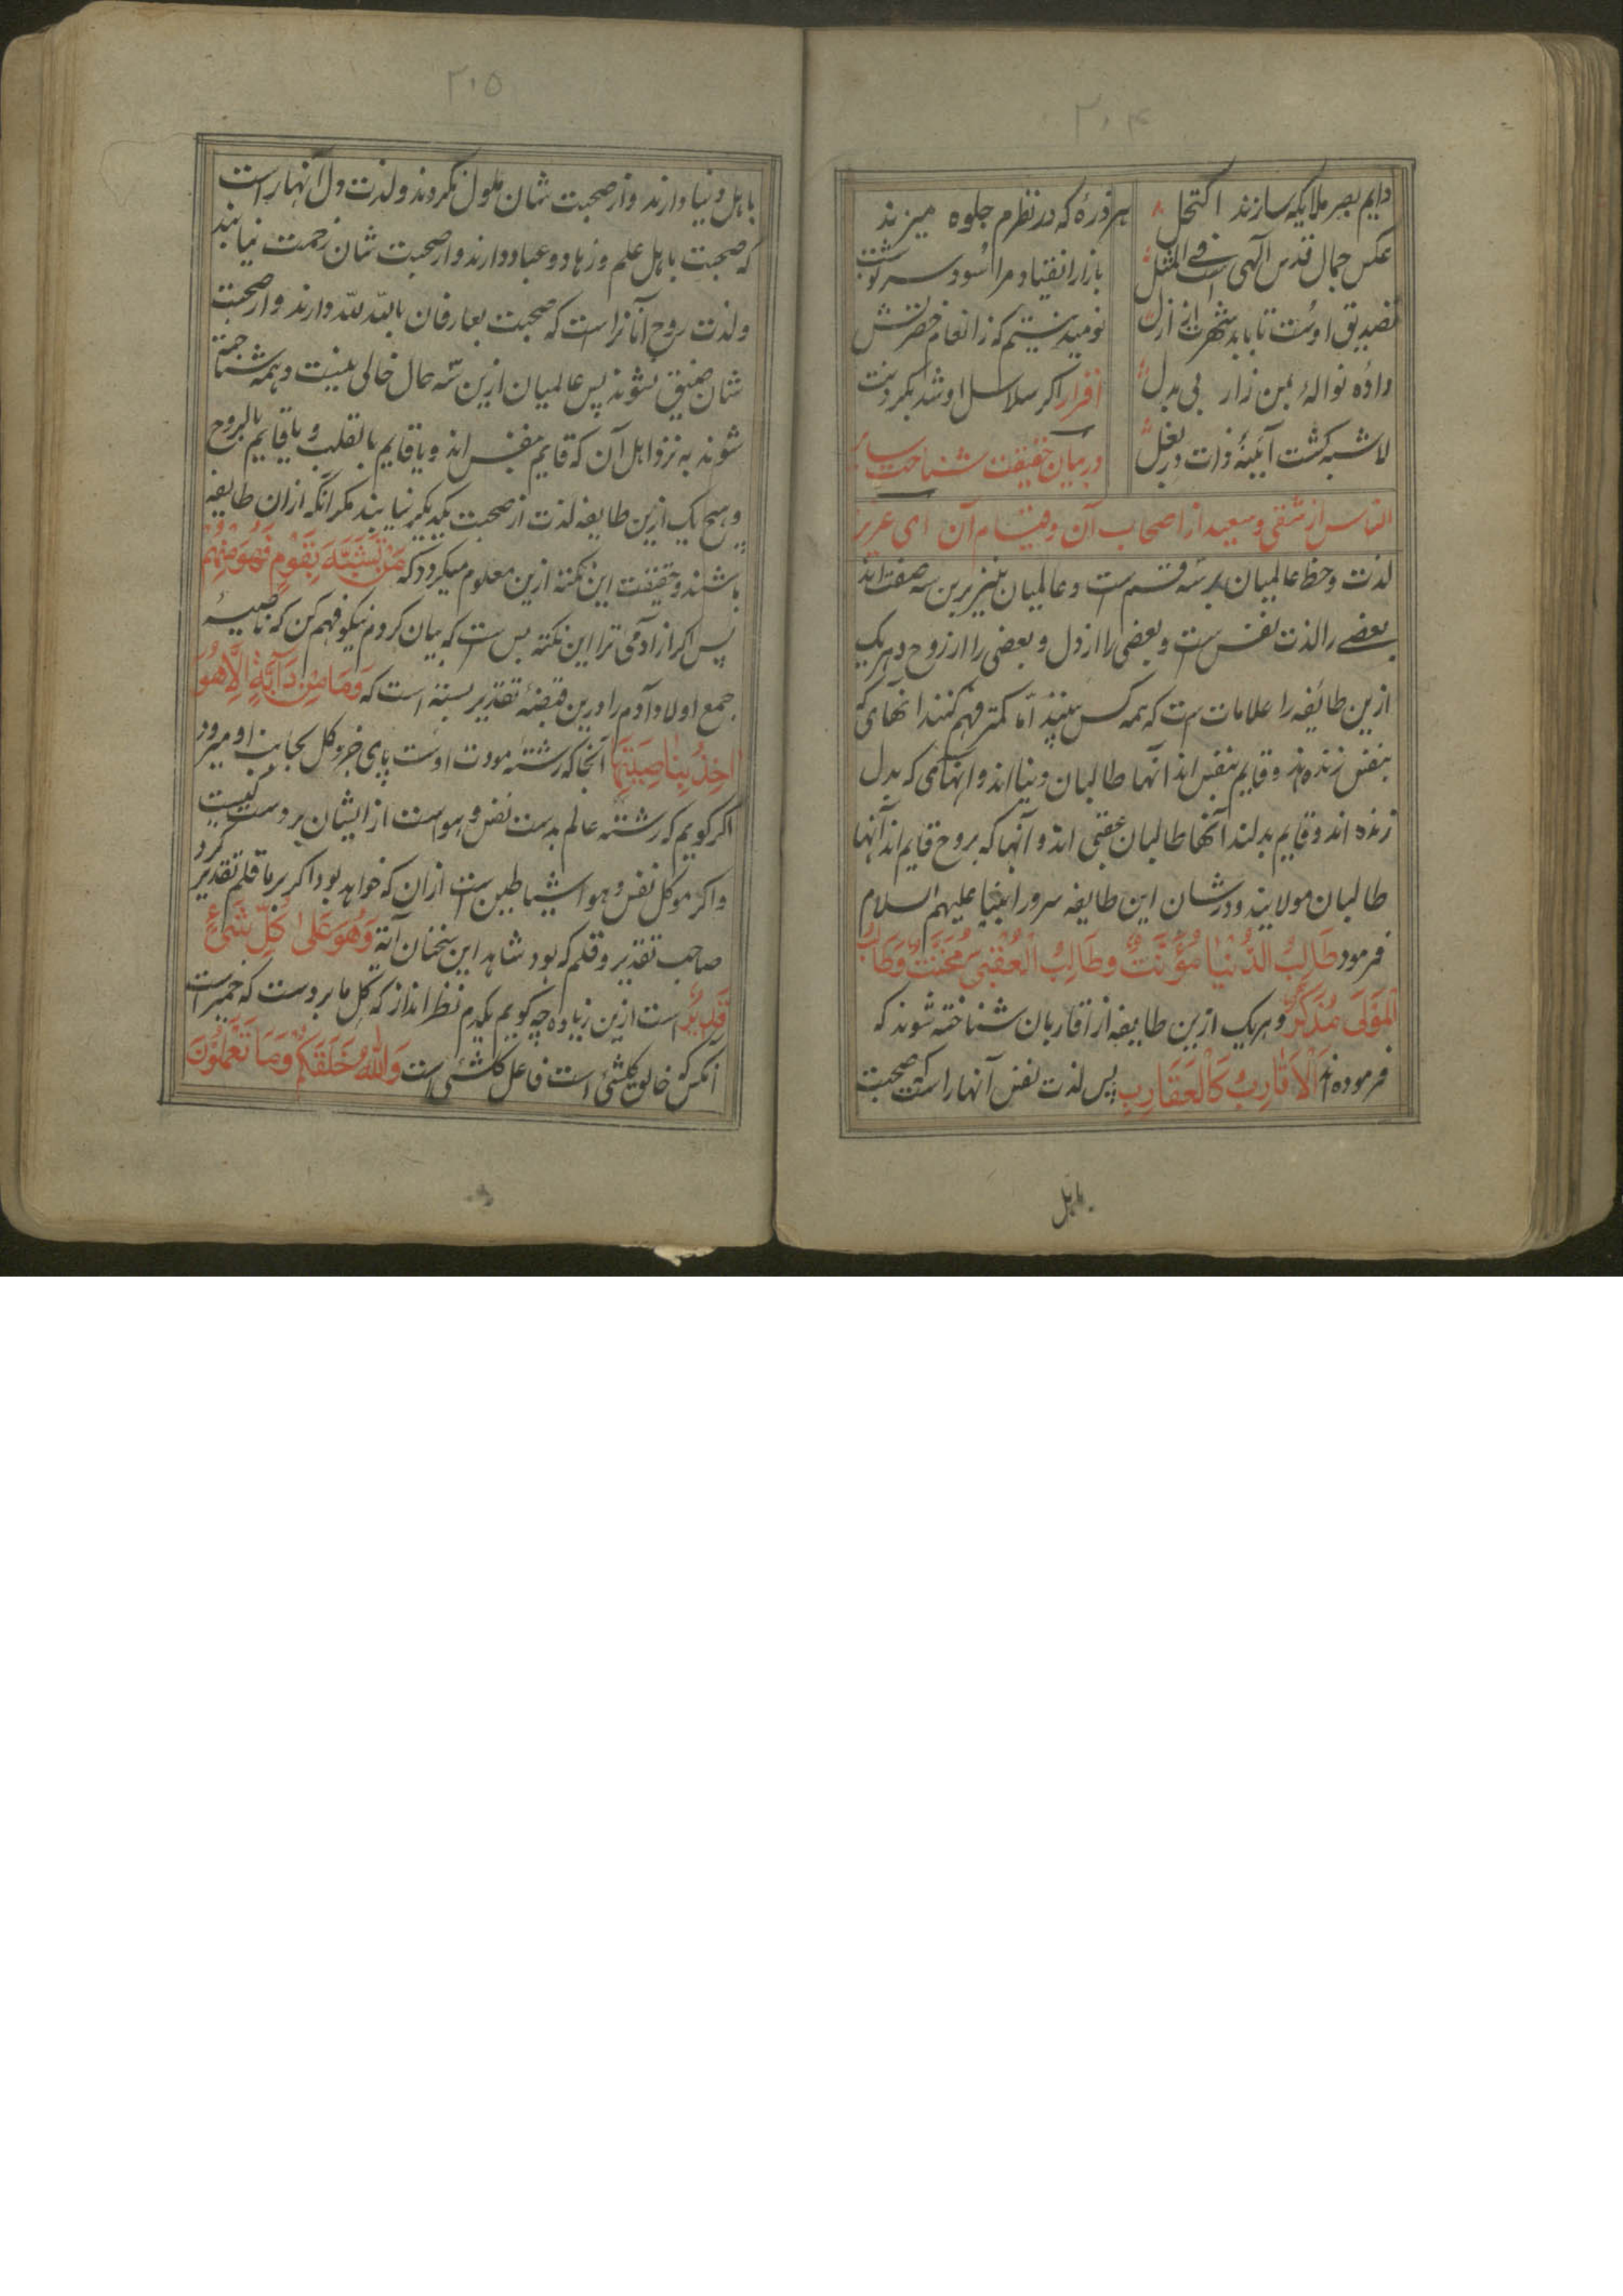 ۲۰۴
دایم بصر ملایکه سازند اکتحل
هر ذره که در نظرم جلوه میزند
عکس جمال قدس آلهی است فی المثل
بازار انقیاد مرا سود سرنوشت
تصدیق اوست تا بابد شهرت از ازل
نومید نیستم که ز انعام حضرتش
داده نوالۀ بمن زار بی بدل
افزار اکر سلاسل او شد بکردنت
لاشبه کشت آیینۀ ذات در بغل
در بیان حقیقت شناخت سایر
الناس از شقی و سعید از اصحاب آن و فیسام آن ای عزیز
لذت و حظ عالمیان بر سه قسم ست و عالمیان نیز برین سه صفت اند
بعضے را لذت نفس ست و بعضی را از دل و بعضی را از روح و هر یک
ازین طائفه را علامات ست که همه کس بینند اما کمتر فهم کنند انهای که
بنفس زنده اند و قایم بنفس اند آنها طالبان دنیا اند و انهای که بدل
زنده اند و قایم بدلند آنها طالبان عقبی اند و آنها که بروح قایم اند آنها
طالبان مولایند و در شان این طایفه سرور انبیا علیهم السلام
فرمود طَالِبُ الدُّنْیَا مُؤَنَّثٌ وَطَالِبُ الْعُقْبٰی مُخَنَّثٌ وَطَالِبُ
الْمَوْلَی مُذَکَّرٌ و هر یک ازین طایفه از اقاربان شناخته شوند که
فرموده اند اَلْاَقَارِبُ کَالْعَقَارِبِ پس لذت نفس آنها راست که صحبت
باهل
۲۰۵
باهل دنیا دارند و از صحبت شان ملول نکردند و لذت دل آنها راست
که صحبت باهل علم و زهاد و عباد دارند و از صحبت شان زحمت نیابند
و لذت روح آنانراست که صحبت بعارفان بالله لله دارند و از صحبت
شان ضیق نشوند پس عالمیان ازین سه حال خالی نیست و همه شناخته
شوند به نزد اهل آن که قایم بنفس اند و یا قایم بالقلب و یا قایم بالروح
و هیچ یک ازین طایفه لذت از صحبت یکدیکر نیابند مکر انکه از ان طایفه
باشند و حقیقت این نکته ازین معلوم میکردد که مَنْ تَشَبَّهَ بِقَوْمٍ فَهُوَ مِنْهُمْ
پس اکر از آدمی ترا این نکته بس ست که بیان کردم نیکو فهم کن که ناصیۀ
جمع اولاد آدم را در ین قبضۀ تقدیر بسته است که وَمَا مِنْ دَآبَّةٍ اِلَّا هُوَ
اٰخِذٌ بِنَاصِیَتِهَا آنجا که رشتۀ مودت اوست پای جز و کل بجانب او میرود
اکر کویم که رشته عالم بدست نفس و هواست از ایشان بر دست کیست
و اکر موکل نفس و هوا شیاطین ست از ان که خواهد بود اکر بر ما قلم تقدیر کرد
صاحب تقدیر و قلم که بود شاهد این سخنان آیه وَهُوَ عَلٰی کُلِّ شَیْءٍ
قَدِیْرٌ است ازین زیاده چه کویم یکدم نظر انداز که کل ما بر دست که خمیر است
آنکس که خالق کلشئ است فاعل کلشئ است وَاللّٰهُ خَلَقَکُمْ وَمَا تَعْمَلُوْنَ